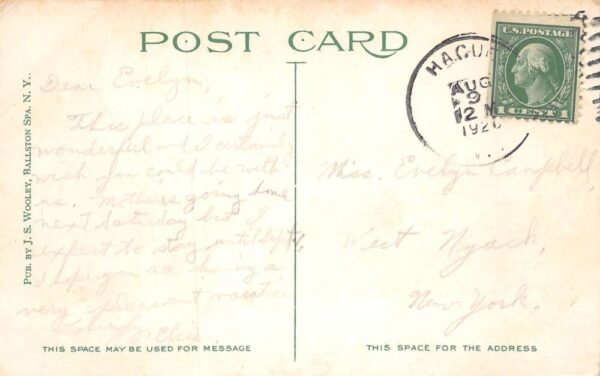 POST CARD
Dear Evelyn,
This place is just
wonderful and I certainly
wish you could be with
us. Mother's going home
next Saturday but I
expect to stay until Sept 1,
I hope you are having a
very pleasant vacation
Lovingly, Elsie.
THIS SPACE MAY BE USED FOR MESSAGE
PUB. BY J. S. WOOLEY, BALLSTON SPA, N. Y.
HAGUE
AUG
9
12 M
1920
U.S. POSTAGE
1 CENT 1
Miss. Evelyn Campbell,
West Nyack,
New York.
THIS SPACE FOR THE ADDRESS